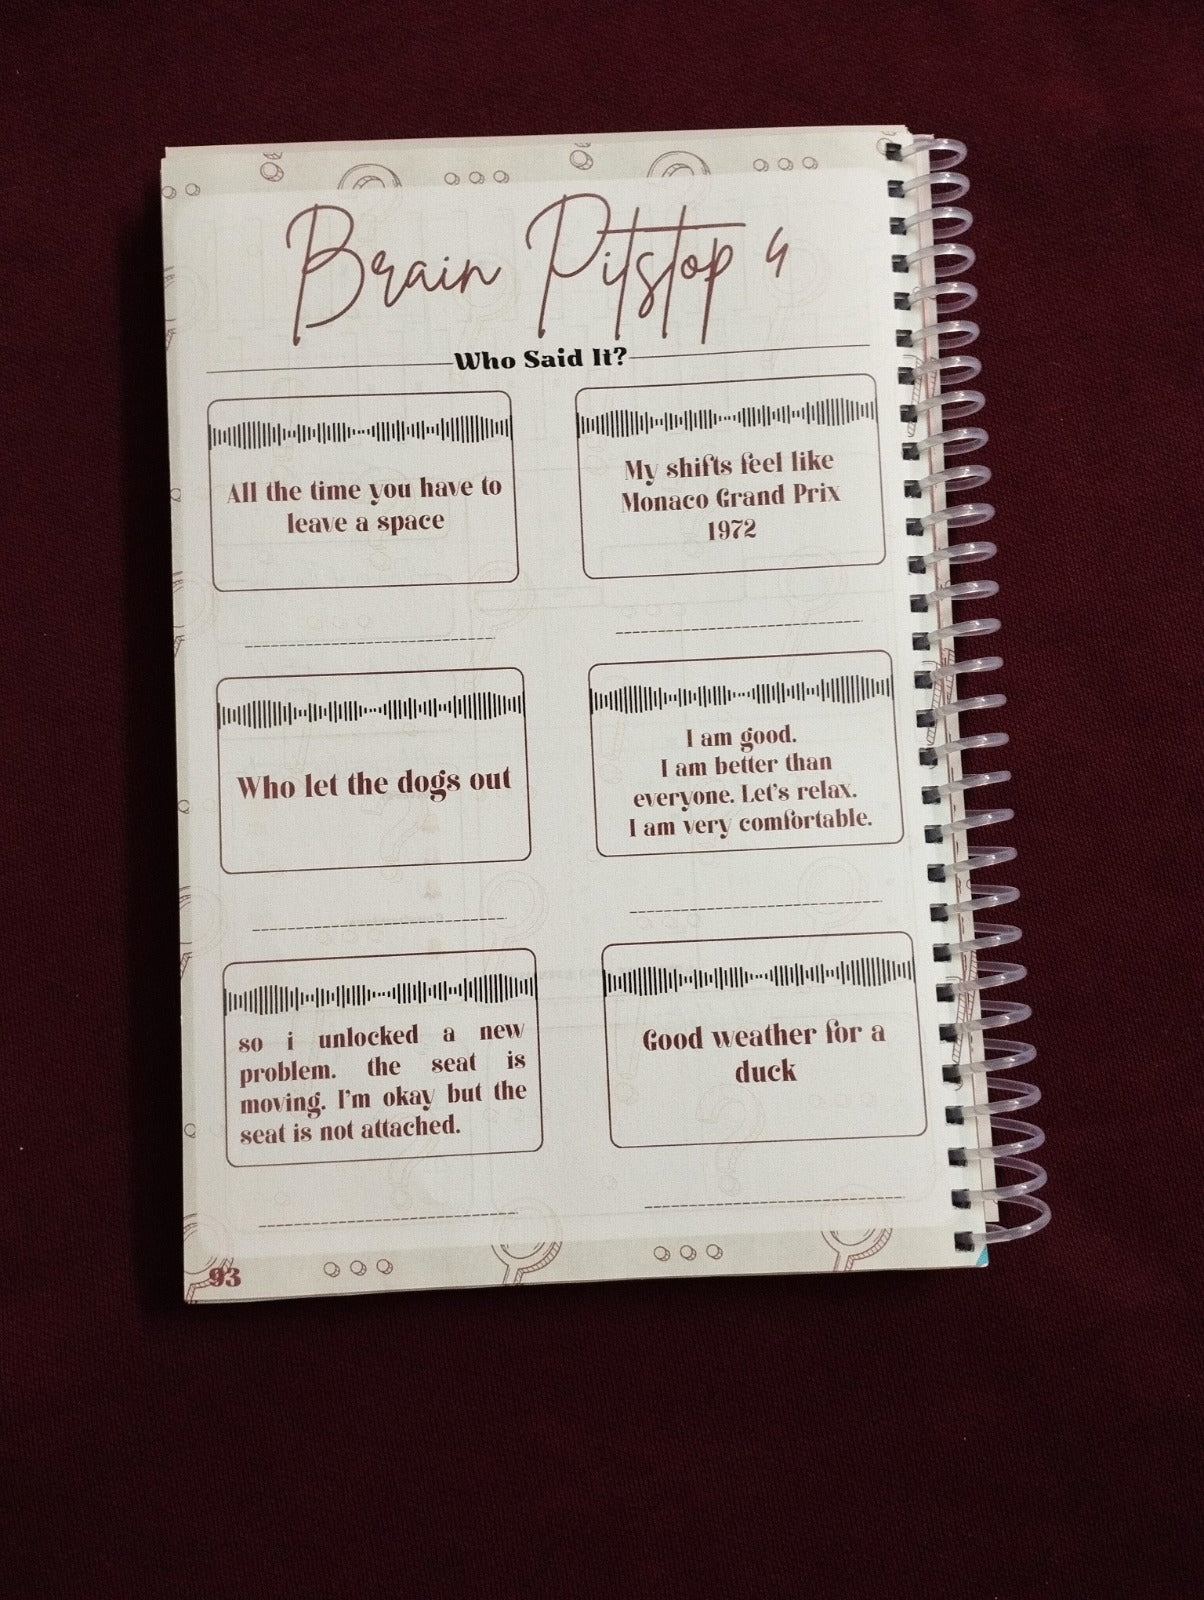 Brain Pitstop 4
Who Said It?
All the time you have to
leave a space
My shifts feel like
Monaco Grand Prix
1972
Who let the dogs out
I am good.
I am better than
everyone. Let's relax.
I am very comfortable.
so i unlocked a new
problem. the seat is
moving. I'm okay but the
seat is not attached.
Good weather for a
duck
93